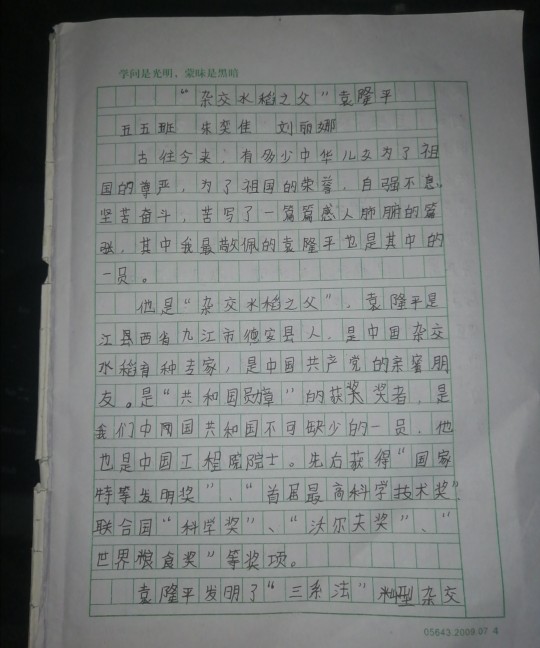 学问是光明，蒙昧是黑暗
“杂交水稻之父”袁隆平
五五班 朱奕佳 刘丽娜
古往今来，有多少中华儿女为了祖
国的尊严，为了祖国的荣誉，自强不息。
坚苦奋斗，苦写了一篇篇感人肺腑的篇
张，其中我最敬佩的袁隆平也是其中的
一员。
他是“杂交水稻之父”，袁隆平是
江县西省九江市德安县人，是中国杂交
水稻育种专家，是中国共产党的亲密朋
友。是“共和国勋章”的获奖奖者，是
我们中国共和国不可缺少的一员，他
也是中国工程院院士。先后获得“国家
特等发明奖”、“首届最高科学技术奖”
联合国“科学奖”、“沃尔夫奖”、“
世界粮食奖”等奖项。
袁隆平发明了“三系法”籼型杂交
05643.2009.07 4